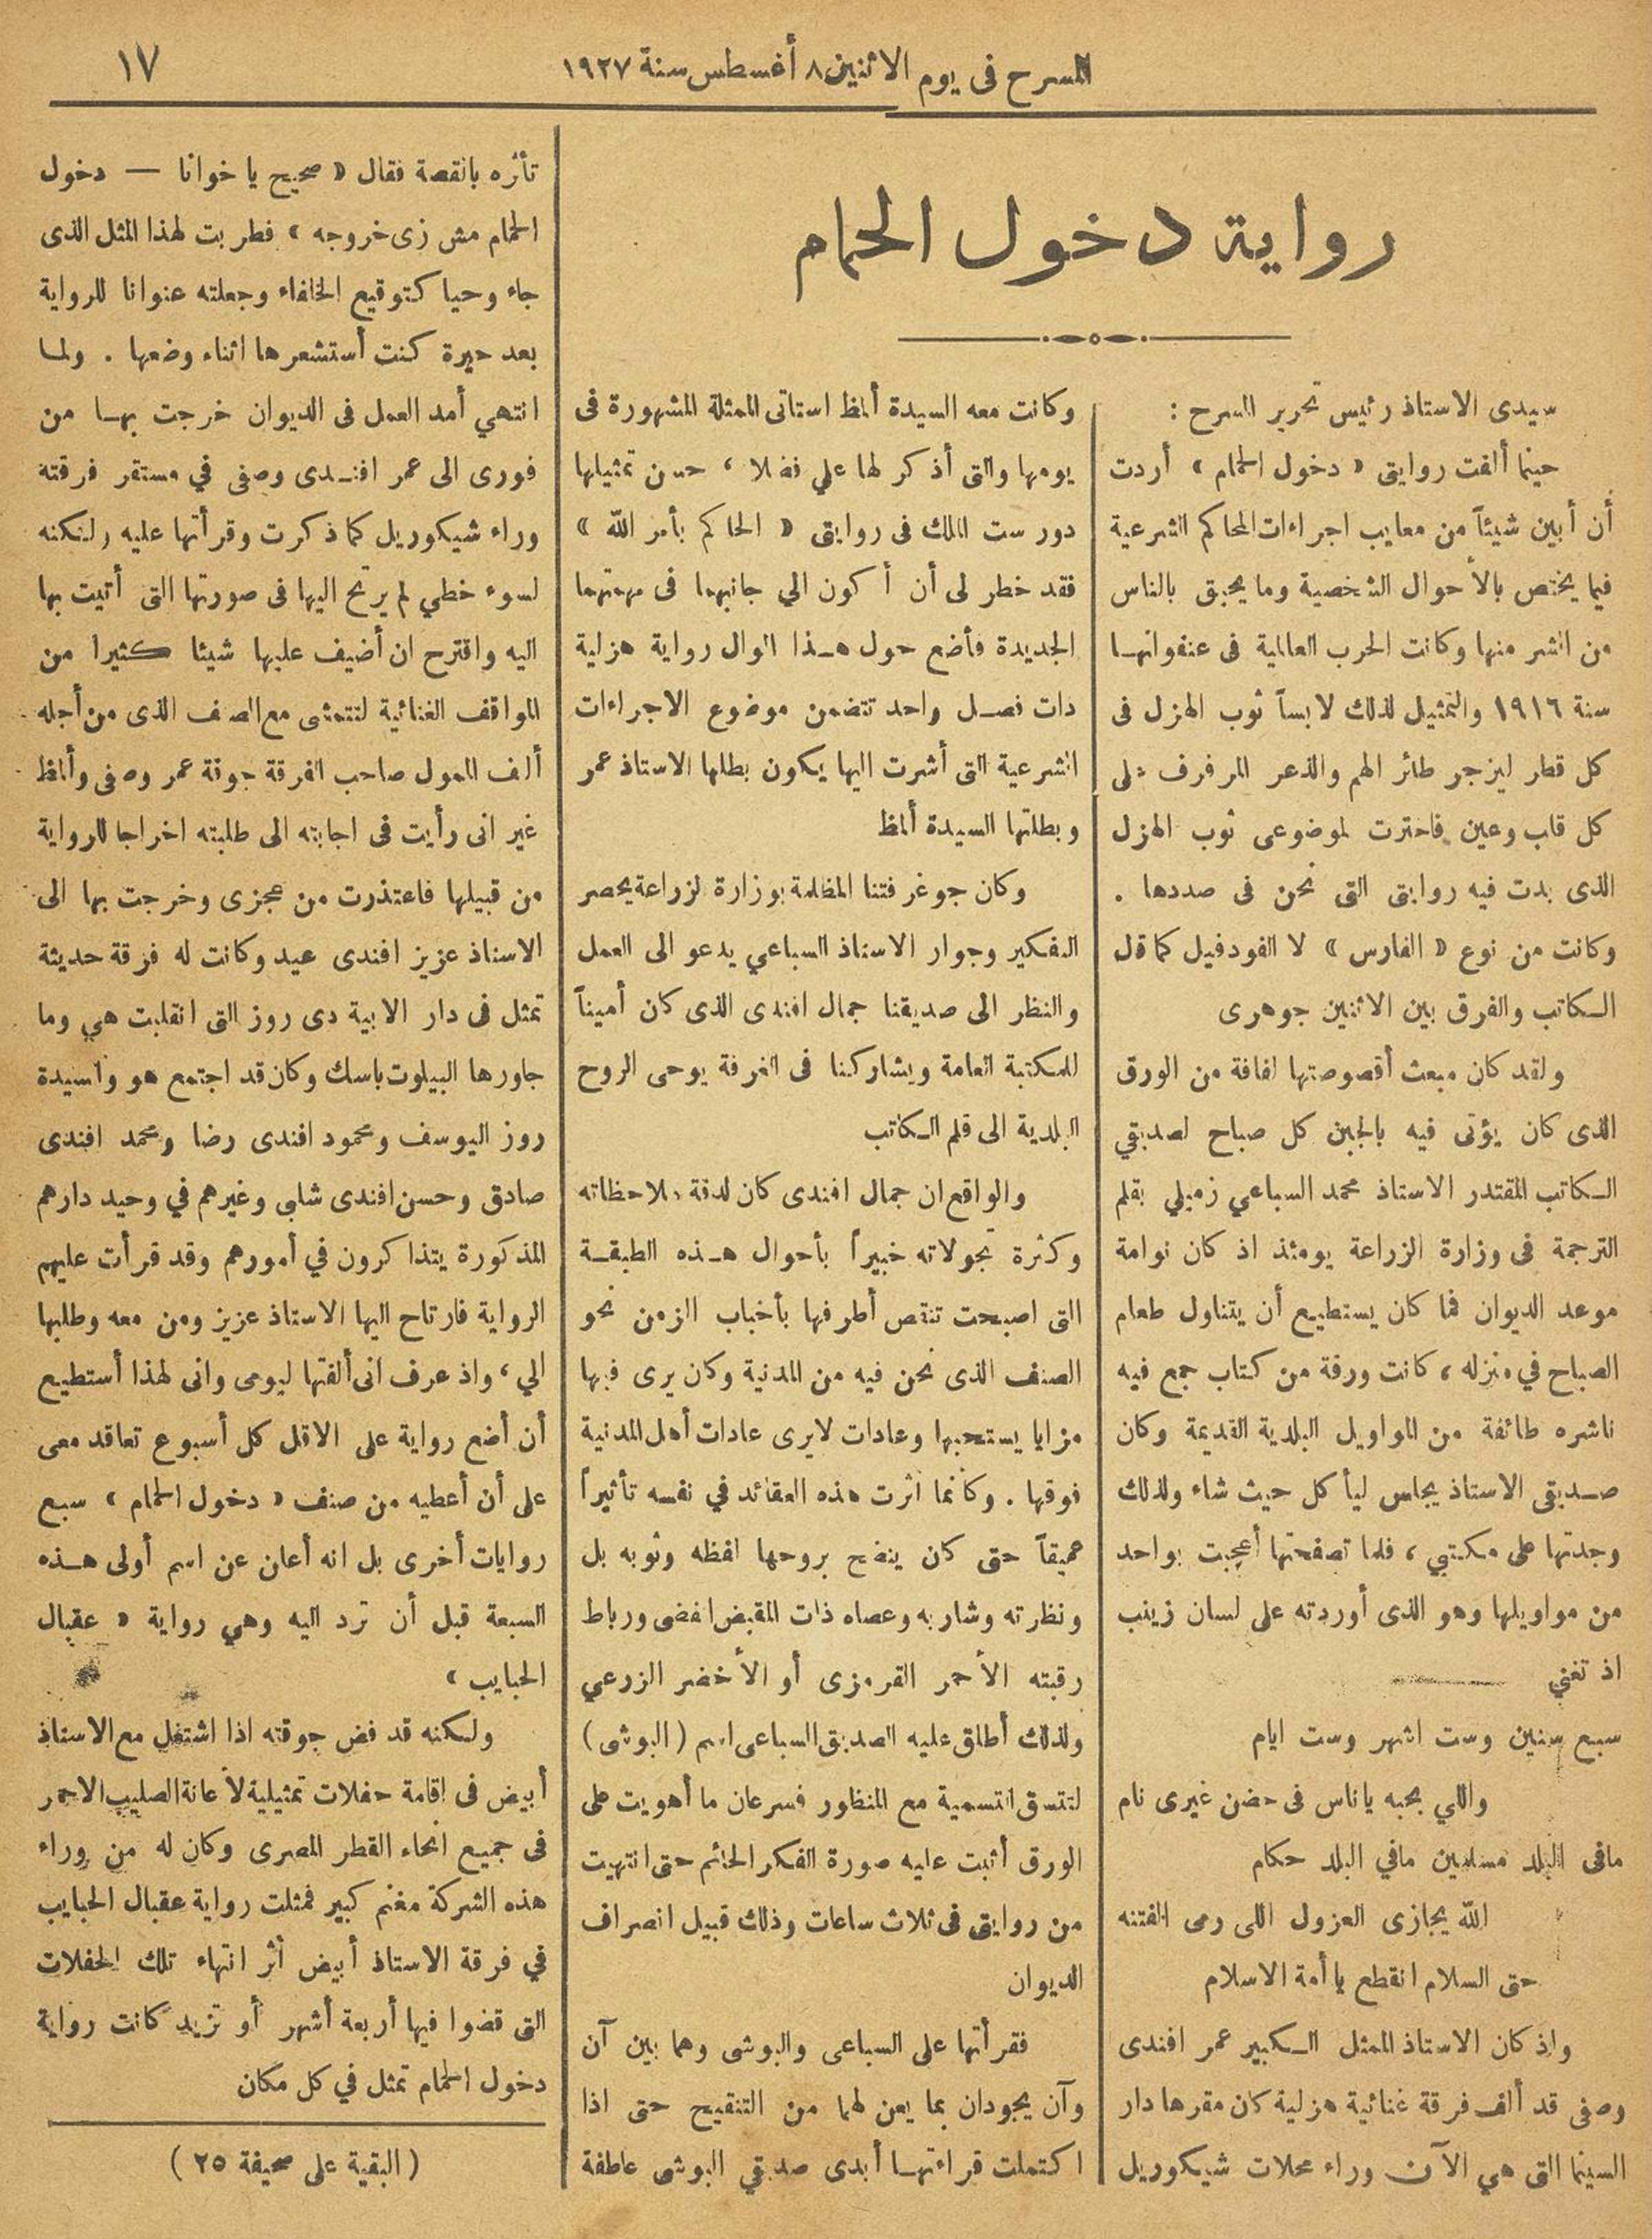 المسرح فى يوم الاثنين ٨ أغسطس سنة ١٩٢٧
١٧
رواية دخول الحمام
سيدى الاستاذ رئيس تحرير المسرح :
حينما ألفت روايتى « دخول الحمام » أردت
أن أبين شيئاً من معايب اجراءات المحاكم الشرعية
فيما يختص بالأحوال الشخصية وما يحيق بالناس
من الشر منها وكانت الحرب العالمية فى عنفوانهــا
سنة ١٩١٦ والتمثيل لذلك لابساً ثوب الهزل فى
كل قطر ليزجر طائر الهم والذعر المرفرف على
كل قلب وعين فاخترت لموضوعى ثوب الهزل
الذى بدت فيه روايتى التى نحن فى صددها .
وكانت من نوع « الفارس » لا الفودفيل كما قال
الكاتب والفرق بين الاثنين جوهرى
ولقد كان مبعث أقصوصتها لفافة من الورق
الذى كان يؤتى فيه بالجبن كل صباح لصديقي
الكاتب المقتدر الاستاذ محمد السباعي زميلي بقلم
الترجمة فى وزارة الزراعة يومئذ اذ كان نوامة
موعد الديوان فما كان يستطيع أن يتناول طعام
الصباح في منزله ، كانت ورقة من كتاب جمع فيه
ناشره طائفة من المواويل البلدية القديمة وكان
صديقى الاستاذ يجلس ليأكل حيث شاء ولذلك
وجدتها على مكتبي ، فلما تصفحتها أعجبت بواحد
من مواويلها وهو الذى أوردته على لسان زينب
اذ تغني
سبع سنين وست اشهر وست ايام
واللي بحبه ياناس فى حضن غيرى نام
مافى البلد مسلمين مافي البلد حكام
الله يجازى العزول اللى رمى الفتنه
حتى السلام انقطع يا أمة الاسلام
واذ كان الاستاذ الممثل الكبير عمر افندى
وصفى قد ألف فرقة غنائية هزلية كان مقرها دار
السينما التى هي الآن وراء محلات شيكوريل
وكانت معه السيدة ألمظ استاتى الممثلة المشهورة فى
يومها والتى أذكر لها علي فضلا ، حسن تمثيلها
دور ست الملك فى روايتى « الحاكم بأمر الله »
فقد خطر لى أن أكون الي جانبهما فى مهمتهما
الجديدة فأضع حول هــذا الموال رواية هزلية
ذات فصــل واحد تتضمن موضوع الاجراءات
الشرعية التى أشرت اليها يكون بطلها الاستاذ عمر
وبطلتها السيدة ألمظ
وكان جو غرفتنا المظلمة بوزارة الزراعة يحصر
التفكير وجوار الاستاذ السباعي يدعو الى العمل
والنظر الى صديقنا جمال افندى الذى كان أميناً
للمكتبة العامة ويشاركنا فى الغرفة يوحى الروح
البلدية الى قلم الكاتب
والواقع ان جمال افندى كان لدقة ملاحظاته
وكثرة تجولاته خبيراً بأحوال هــذه الطبقــة
التى اصبحت تنتقص أطرفها بأخباب الزمن نحو
الصنف الذى نحن فيه من المدنية وكان يرى فيها
مزايا يستحبها وعادات لايرى عادات أهل المدنية
فوقها . وكأنما أثرت هذه العقائد في نفسه تأثيراً
عميقاً حتى كان ينضح بروحها لفظه وثوبه بل
ونظرته وشاربه وعصاه ذات المقبض الفضى ورباط
رقبته الأحمر القرمزى أو الأخضر الزرعي
ولذلك أطلق عليه الصديق السباعى اسم ( البوشى )
لتتسق التسمية مع المنظور فسرعان ما أهويت على
الورق أثبت عليه صورة الفكر الحائم حتى انتهيت
من روايتى فى ثلاث ساعات وذلك قبيل انصراف
الديوان
فقرأتها على السباعى والبوشى وهما بين آن
وآن يجودان بما يعن لهما من التنقيح حتى اذا
اكتملت قراءتهــا أبدى صديقي البوشى عاطفة
تأثره بالقصة فقال « صحيح يا خوانا — دخول
الحمام مش زى خروجه » فطربت لهذا المثل الذى
جاء وحيا كتوقيع الخلفاء وجعلته عنوانا للرواية
بعد حيرة كنت أستشعرها اثناء وضعها . ولمــا
انتهي أمد العمل فى الديوان خرجت بهــا من
فورى الى عمر افنــدى وصفى في مستقر فرقته
وراء شيكوريل كما ذكرت وقرأتها عليه ولكنه
لسوء خطي لم يرتح اليها فى صورتها التى أتيت بها
اليه واقترح ان أضيف عليها شيئا كثيرا من
المواقف الغنائية لتتمشى مع الصنف الذى من أجله
ألف الممول صاحب الفرقة جوقة عمر وصفى وألمظ
غير انى رأيت فى اجابته الى طلبته اخراجا للرواية
من قبيلها فاعتذرت من عجزى وخرجت بها الى
الاستاذ عزيز افندى عيد وكانت له فرقة حديثة
تمثل فى دار الابية دى روز التى انقلبت هي وما
جاورها البيلوت باسك وكان قد اجتمع هو والسيدة
روز اليوسف ومحمود افندى رضا ومحمد افندى
صادق وحسن افندى شلبى وغيرهم في وحيد دارهم
المذكورة يتذاكرون في أمورهم وقد قرأت عليهم
الرواية فارتاح اليها الاستاذ عزيز ومن معه وطلبها
الي ، واذ عرف انى ألفتها ليومى وانى لهذا أستطيع
أن أضع رواية على الاقل كل أسبوع تعاقد معى
على أن أعطيه من صنف « دخول الحمام » سبع
روايات أخرى بل انه أعلن عن اسم أولى هــذه
السبعة قبل أن ترد اليه وهي رواية « عقبال
الحبايب »
ولكنه قد فض جوقته اذا اشتغل مع الاستاذ
أبيض فى اقامة حفلات تمثيلية لأعانة الصليب الاحمر
فى جميع انحاء القطر المصرى وكان له من وراء
هذه الشركة مغنم كبير فمثلت رواية عقبال الحبايب
في فرقة الاستاذ أبيض أثر انتهاء تلك الحفلات
التى قضوا فيها أربعة أشهر أو تزيد كانت رواية
دخول الحمام تمثل في كل مكان
( البقية على صحيفة ٢٥ )